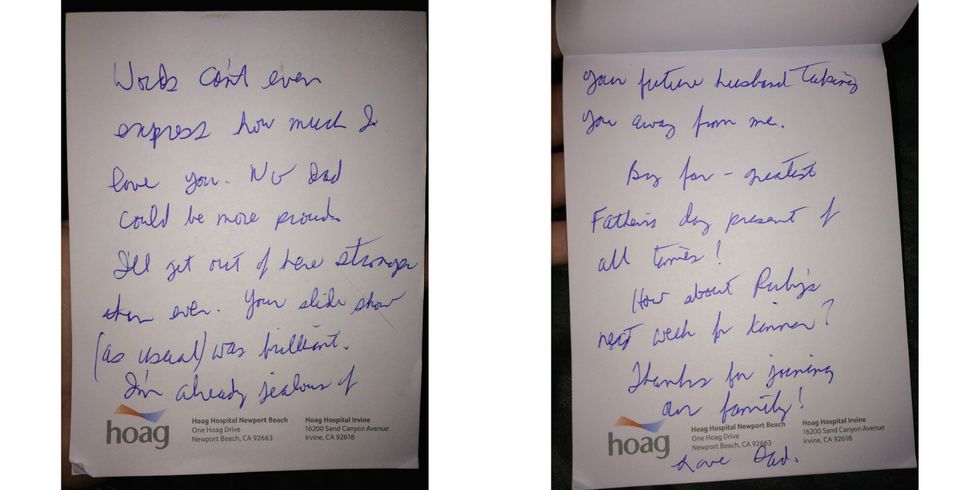 Words can't even
express how much I
love you. No Dad
could be more proud.
I'll get out of here stronger
than ever. Your slide show
(as usual) was brilliant.
I'm already jealous of
hoag
Hoag Hospital Newport Beach
One Hoag Drive
Newport Beach, CA 92663
Hoag Hospital Irvine
16200 Sand Canyon Avenue
Irvine, CA 92618
your future husband taking
you away from me.
By far - greatest
Father's day present of
all times!
How about Ruby's
next week for dinner?
Thanks for joining
our family!
hoag
Hoag Hospital Newport Beach
One Hoag Drive
Newport Beach, CA 92663
Hoag Hospital Irvine
16200 Sand Canyon Avenue
Irvine, CA 92618
Love Dad.